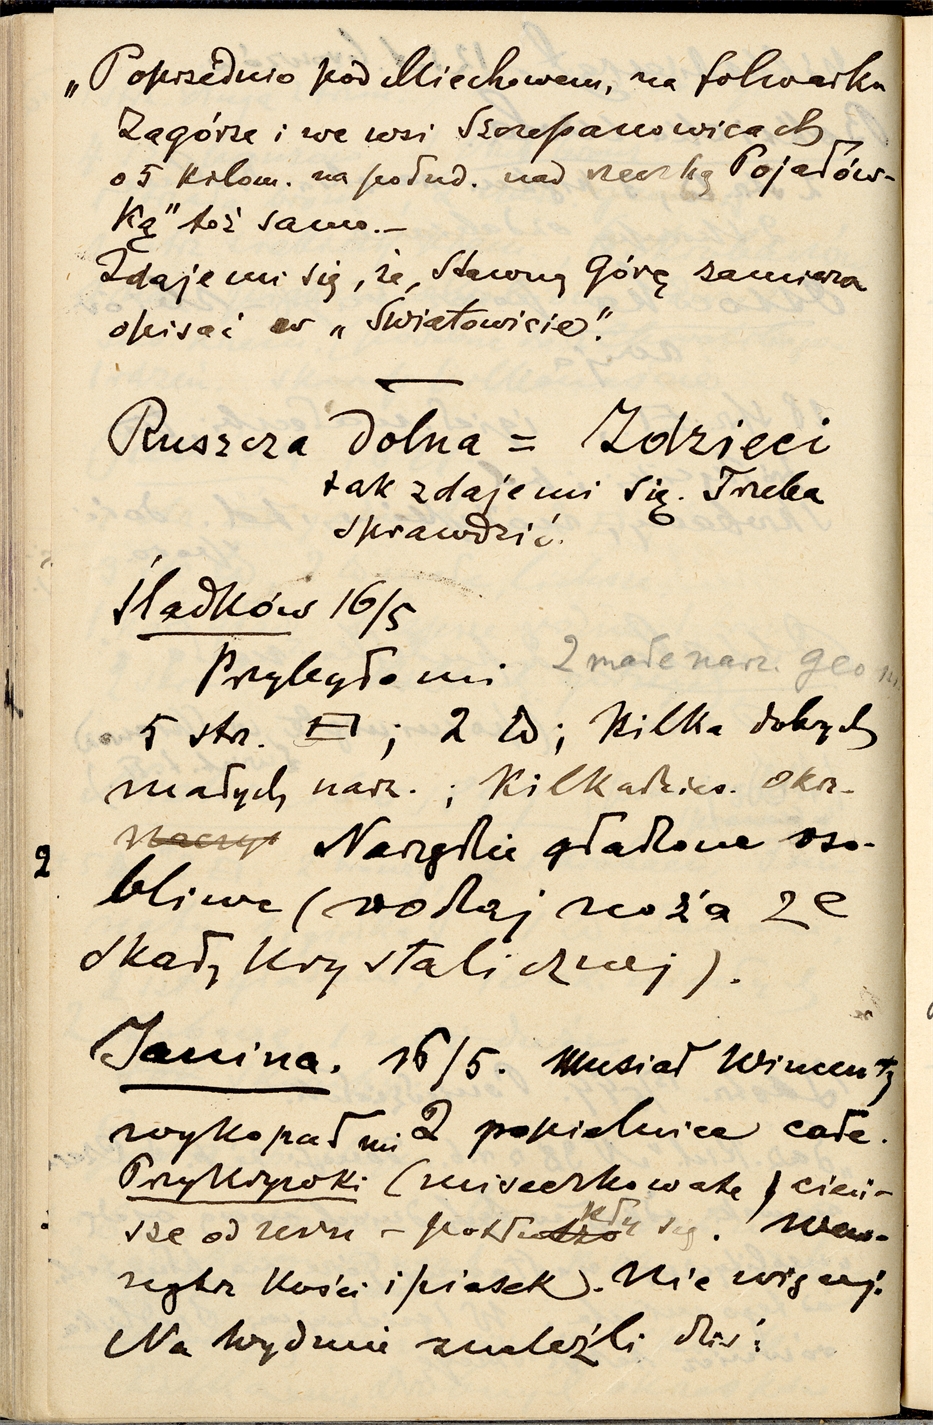 „Poprzednio pod Miechowem, na folwarku
Zagórze i we wsi Szczepanowicach
o 5 kilom. na połud. nad rzeczką Pojałów-
ką" też samo.—
Zdaje mi się, że „Sławną Górę zamierza
opisać w „Światowicie".
Ruszcza Dolna = Zdzieci
tak zdaje mi się. Trzeba
sprawdzić.
Śladków 16/5
Przybyło mi 2 małe narz. geom.
5 str. ; 2 ; kilka dobrych
małych narz. ; kilkadzies. okrz.
2 Narzędzie gładzone oso-
bliwe (rodzaj noża ze
skały krystalicznej).
Janina. 16/5. Musiał Wincenty
wykopał mi 2 popielnice całe.
Przykrywki (miseczkowate, cień-
sze od zewn – potłukły się. Wew-
nątrz kości i piasek). Nic więcej.
Na wydmie znaleźli dziś: